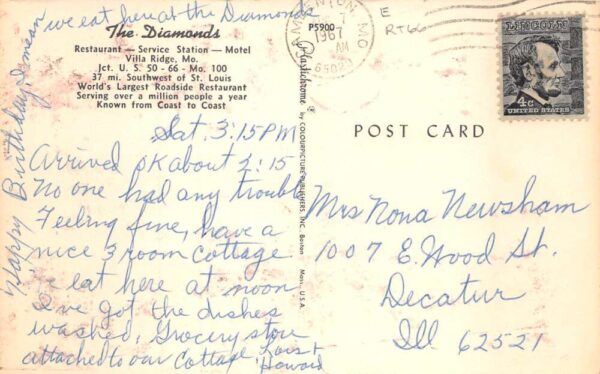 we eat here at the Diamonds
The Diamonds
Restaurant — Service Station — Motel
Villa Ridge, Mo.
Jct. U. S. 50 - 66 - Mo. 100
37 mi. Southwest of St. Louis
World's Largest Roadside Restaurant
Serving over a million people a year
Known from Coast to Coast
Happy Birthday, I mean
Sat. 3:15 PM
Arrived OK about 2:15
No one had any trouble
Feeling fine, have a
nice 3 room cottage
We eat here at noon
I've got the dishes
washed, Grocery store
attached to our Cottage, Lois &
Howard
P5900
Plastichrome ®
by COLOURPICTURE PUBLISHERS, INC. Boston Mass. U.S.A.
MO.
7
AM
1967
63023
E
RT66
LINCOLN
4c
UNITED STATES
POST CARD
Mrs Nona Newsham
1007 E. Wood St.
Decatur
Ill 62521